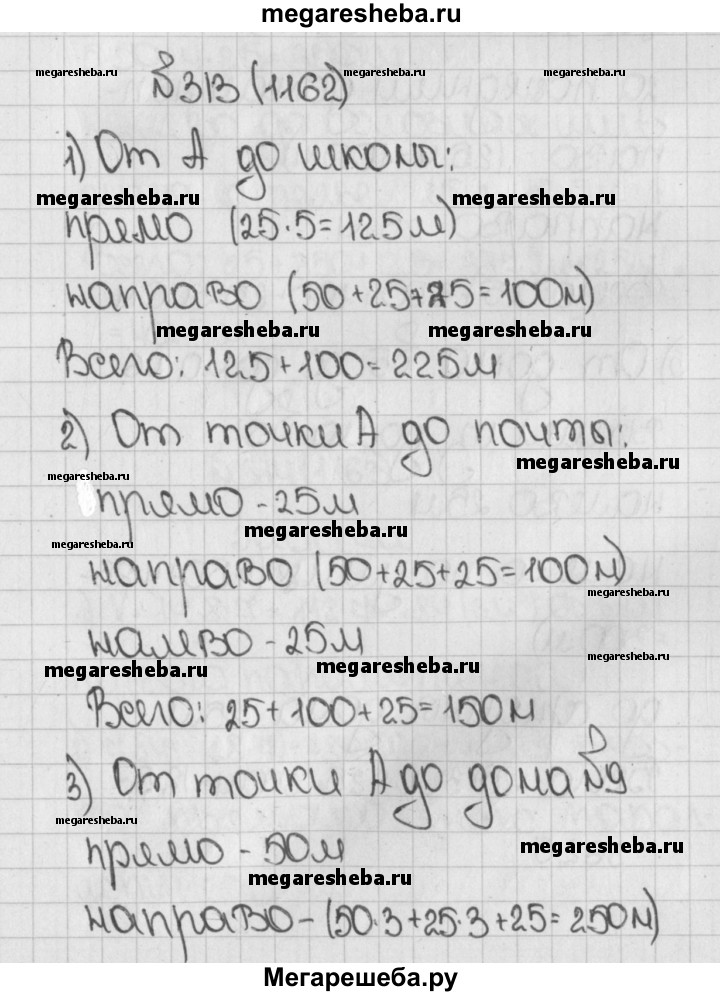 megaresheba.ru
№313 (1162)
megaresheba.ru megaresheba.ru megaresheba.ru
1) От А до школы:
megaresheba.ru megaresheba.ru
прямо (25·5=125м)
направо (50+25+25=100м)
megaresheba.ru megaresheba.ru
Всего: 125+100=225м
2) От точки А до почты:
megaresheba.ru megaresheba.ru
прямо - 25м
megaresheba.ru
megaresheba.ru
направо (50+25+25=100м)
megaresheba.ru
налево - 25м
megaresheba.ru megaresheba.ru megaresheba.ru
Всего: 25+100+25=150м
3) От точки А до дома №9
megaresheba.ru
прямо - 50м
megaresheba.ru megaresheba.ru
направо - (50·3+25·3+25=250м)
Мегарешеба.ру